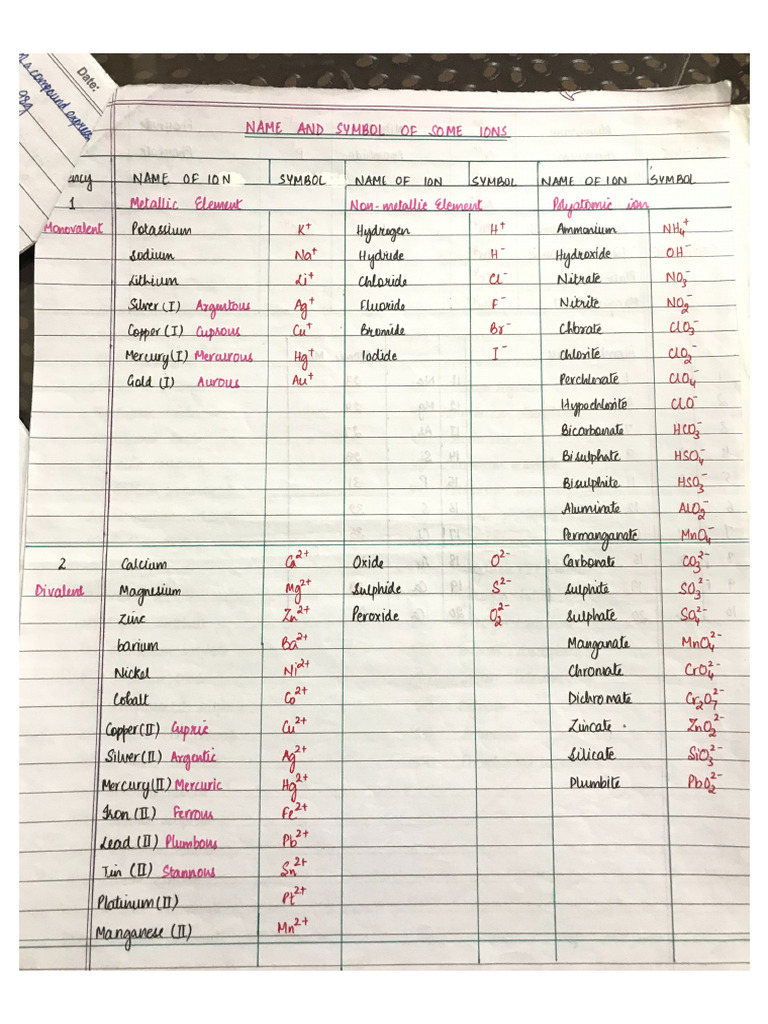 Date:
NAME AND SYMBOL OF SOME IONS
NAME OF ION SYMBOL NAME OF ION SYMBOL NAME OF ION SYMBOL
1 Metallic Element Non-metallic Element Polyatomic ion
Monovalent Potassium K⁺ Hydrogen H⁺ Ammonium NH₄⁺
Sodium Na⁺ Hydride H⁻ Hydroxide OH⁻
Lithium Li⁺ Chloride Cl⁻ Nitrate NO₃⁻
Silver (I) Argentous Ag⁺ Fluoride F⁻ Nitrite NO₂⁻
Copper (I) Cuprous Cu⁺ Bromide Br⁻ Chlorate ClO₃⁻
Mercury (I) Mercurous Hg⁺ Iodide I⁻ Chlorite ClO₂⁻
Gold (I) Aurous Au⁺ Perchlorate ClO₄⁻
Hypochlorite ClO⁻
Bicarbonate HCO₃⁻
Bisulphate HSO₄⁻
Bisulphite HSO₃⁻
Aluminate AlO₂⁻
Permanganate MnO₄⁻
2 Calcium Ca²⁺ Oxide O²⁻ Carbonate CO₃²⁻
Divalent Magnesium Mg²⁺ Sulphide S²⁻ Sulphite SO₃²⁻
Zinc Zn²⁺ Peroxide O₂²⁻ Sulphate SO₄²⁻
barium Ba²⁺ Manganate MnO₄²⁻
Nickel Ni²⁺ Chromate CrO₄²⁻
Cobalt Co²⁺ Dichromate Cr₂O₇²⁻
Copper (II) Cupric Cu²⁺ Zincate ZnO₂²⁻
Silver (II) Argentic Ag²⁺ Silicate SiO₃²⁻
Mercury (II) Mercuric Hg²⁺ Plumbite PbO₂²⁻
Iron (II) Ferrous Fe²⁺
Lead (II) Plumbous Pb²⁺
Tin (II) Stannous Sn²⁺
Platinum (II) Pt²⁺
Manganese (II) Mn²⁺